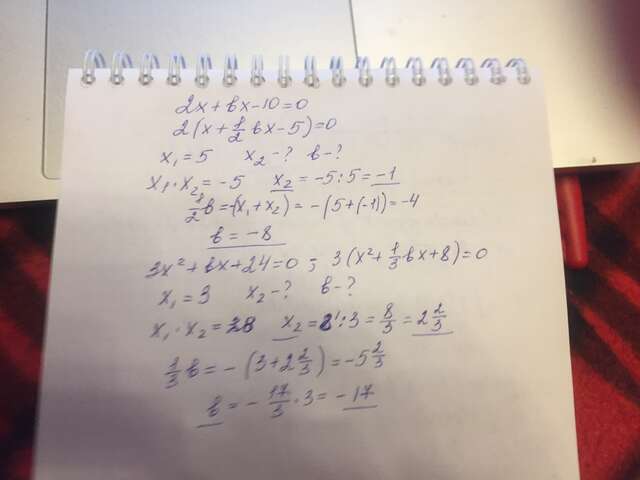 2x+bx-10=0
2(x+1/2 bx-5)=0
x₁=5 x₂-? b-?
x₁·x₂=-5 x₂=-5:5=-1
1/2 b=-(x₁+x₂)=-(5+(-1))=-4
b=-8
3x²+bx+24=0; 3(x²+1/3 bx+8)=0
x₁=3 x₂-? b-?
x₁·x₂= 8 x₂=8:3=8/3=2 2/3
1/3 b=-(3+2 2/3)=-5 2/3
b=-17/3·3=-17